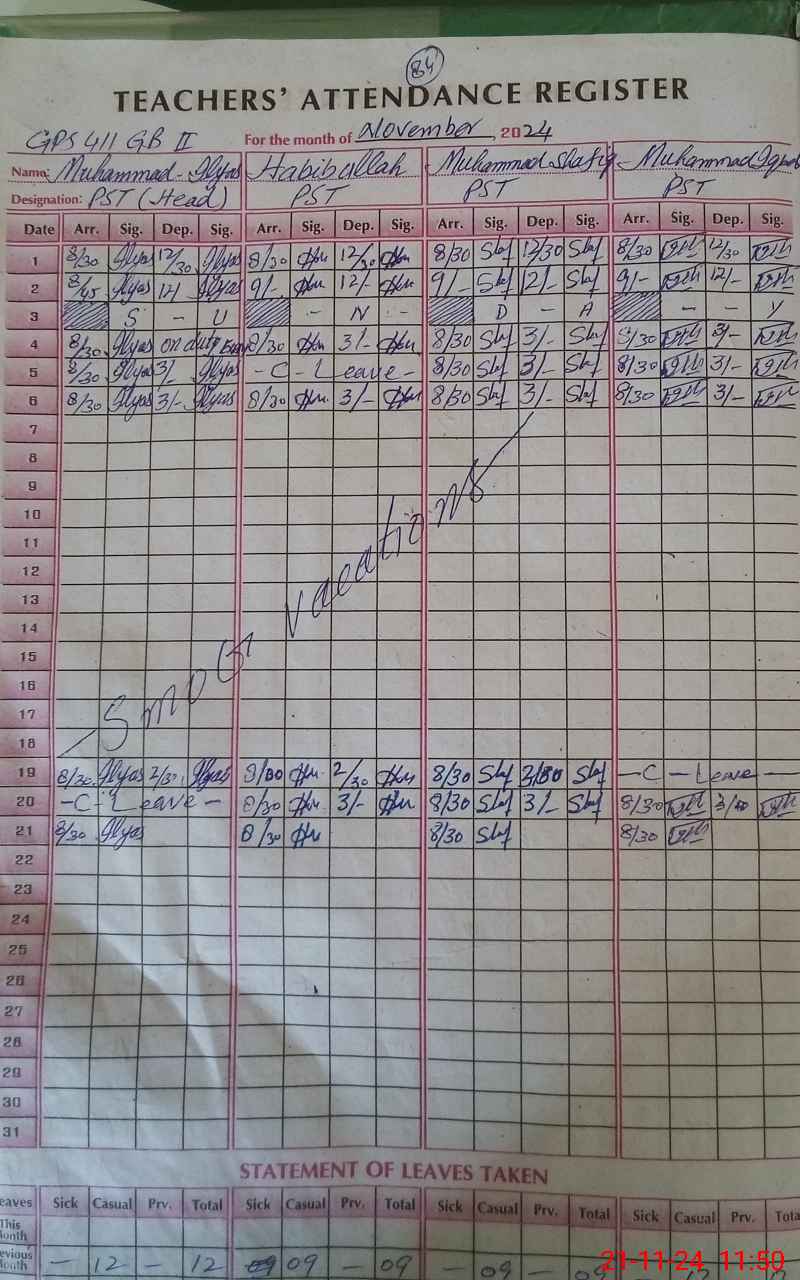 84
TEACHERS' ATTENDANCE REGISTER
GPS 411 GB II For the month of November, 2024
Name: Muhammad-Ilyas Habibullah Muhammad Shafiq Muhammad Iqbal
Designation: PST (Head) PST PST PST
Date Arr. Sig. Dep. Sig. Arr. Sig. Dep. Sig. Arr. Sig. Dep. Sig. Arr. Sig. Dep. Sig.
1 8/30 Ilyas 12/30 Ilyas 8/30 12/30 8/30 Shf 12/30 Shf 8/30 12/30
2 8/45 Ilyas 12/ Ilyas 9/- 12/- 9/- Shf 12/- Shf 9/- 12/-
3 S - U - N - D - A - - Y
4 8/30 Ilyas on duty 8/30 3/- 8/30 Shf 3/- Shf 8/30 3/-
5 8/30 Ilyas 3/- Ilyas - C - Leave - 8/30 Shf 3/- Shf 8/30 3/-
6 8/30 Ilyas 3/- Ilyas 8/30 3/- 8/30 Shf 3/- Shf 8/30 3/-
7
8
9
10
11
12
13
14
15
16
17
18
Smog vacations
19 8/30 Ilyas 2/30 Ilyas 2/30 8/30 Shf 2/30 Shf - C - Leave -
20 - C - Leave - 8/30 3/- 8/30 Shf 3/- Shf 8/30
21 8/30 Ilyas 8/30 8/30 Shf 8/30
22
23
24
25
26
27
28
29
30
31
STATEMENT OF LEAVES TAKEN
eaves Sick Casual Prv. Total Sick Casual Prv. Total Sick Casual Prv. Total Sick Casual Prv. Tota
This
onth,
evious
onth - 12 - 12 09 - 09 - 09 - 09
21-11-24 11:50